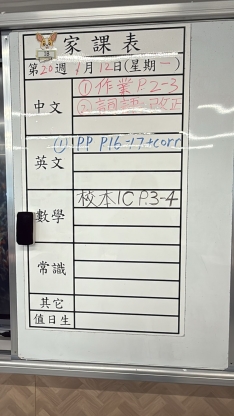 家課表
第20週 1月12日(星期一)
中文
①作業P2-3
英文
① PP P16-17+corr
數學
校本1C P.3-4
常識
其它
值日生